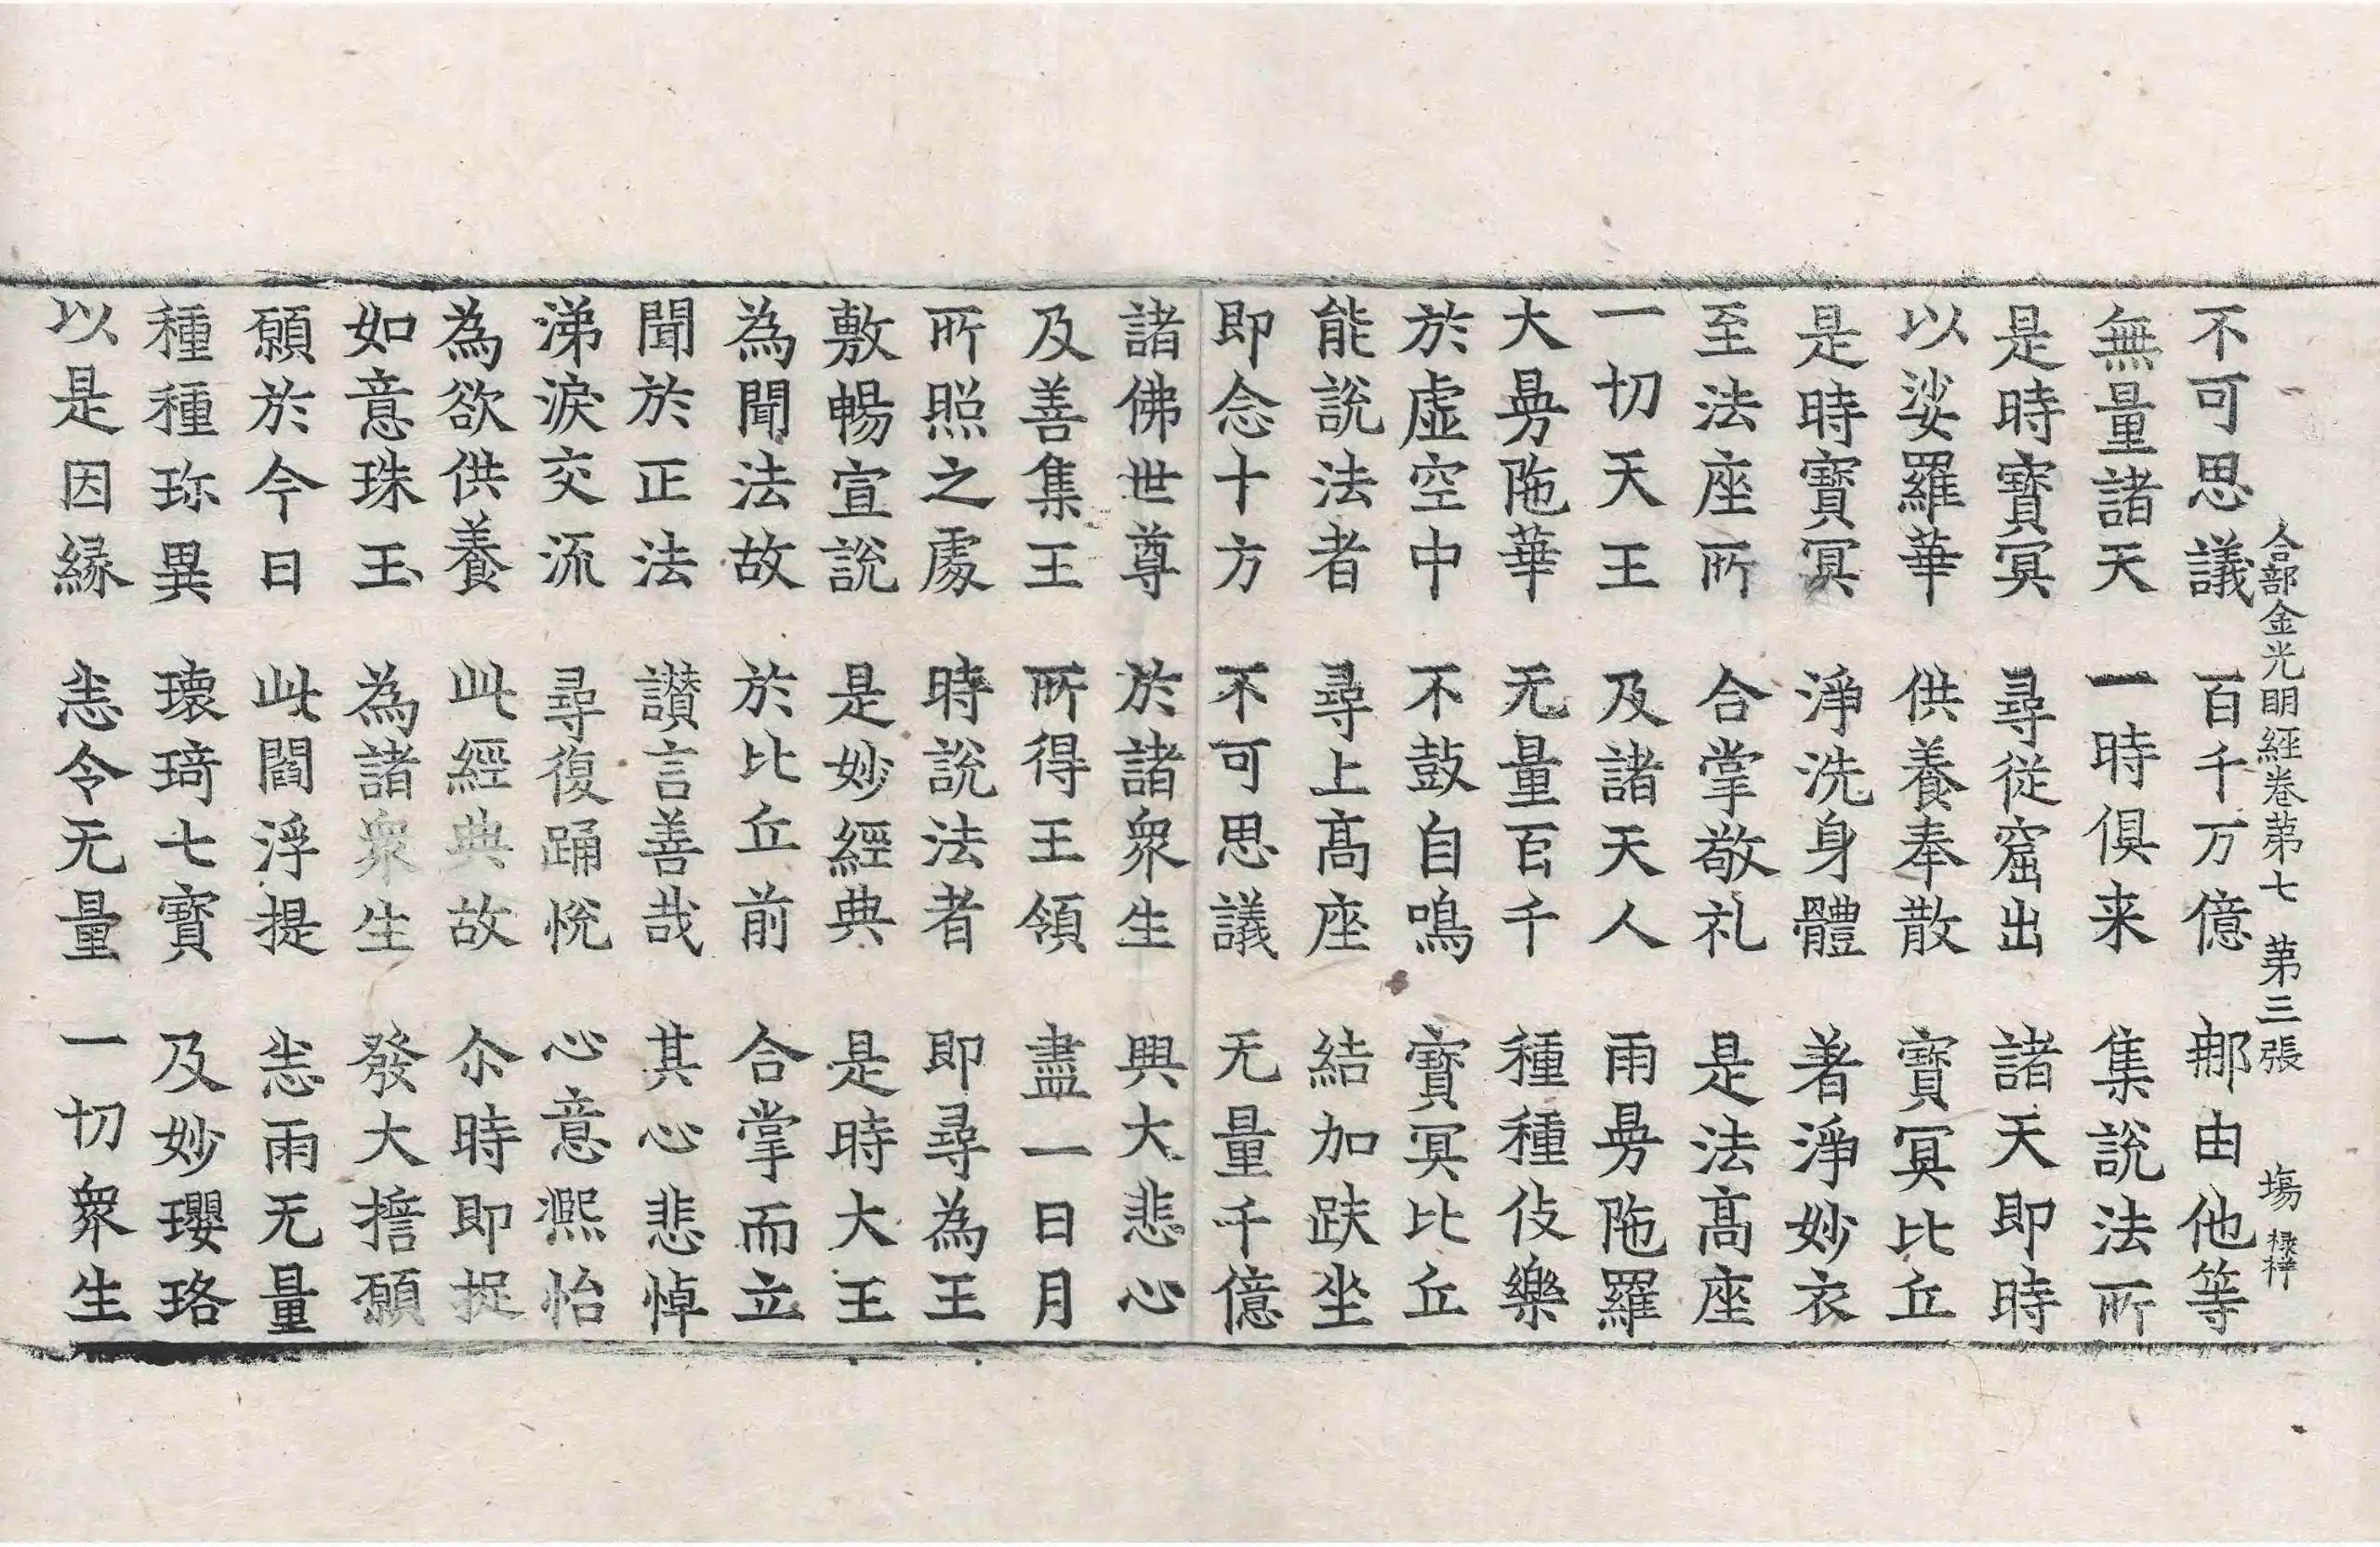 合部金光明經卷苐七 苐三張 塲 禄梓
不可思議 百千万億 那由他等
無量諸天 一時俱来 集說法所
是時寳冥 尋從窟出 諸天即時
以娑羅華 供養奉散 寳冥比丘
是時寳冥 淨洗身體 著淨妙衣
至法座所 合掌敬礼 是法髙座
一切天王 及諸天人 雨㬅陁羅
大㬅陁華 无量百千 種種伎樂
於虛空中 不鼓自鳴 寳冥比丘
能說法者 尋上髙座 結加趺坐
即念十方 不可思議 无量千億
諸佛世尊 於諸衆生 興大悲心
及善集王 所得王領 盡一日月
所照之處 時說法者 即尋為王
敷暢宣說 是妙經典 是時大王
為聞法故 於比丘前 合掌而立
聞於正法 讃言善哉 其心悲悼
涕淚交流 尋復踊悅 心意熈怡
為欲供養 此經典故 尒時即捉
如意珠王 為諸衆生 發大擔願
願於今日 此閻浮提 恚雨无量
種種珎異 瓌琦七寳 及妙瓔珞
以是因縁 恚令无量 一切衆生